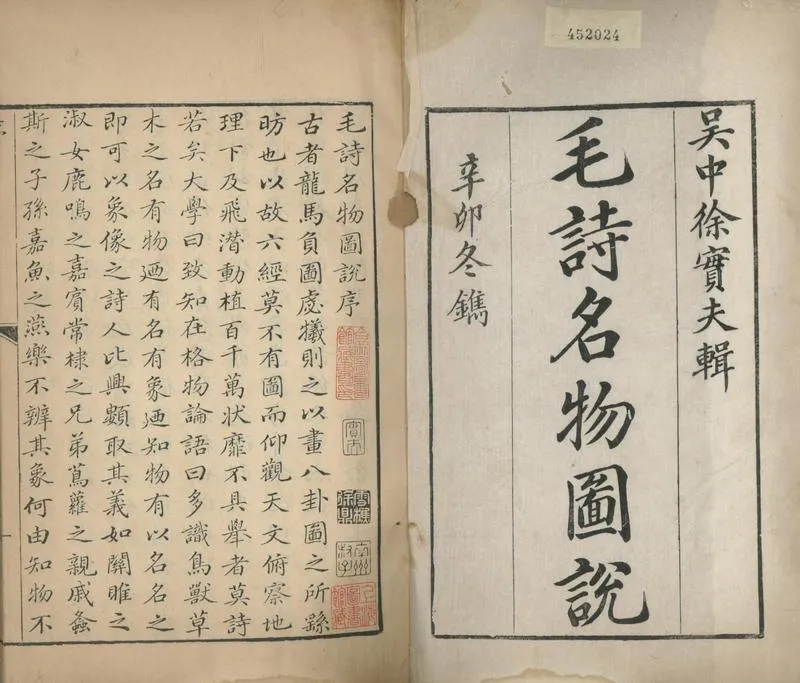 452024
吳中徐實夫輯
毛詩名物圖說
辛卯冬鐫
毛詩名物圖說序
古者龍馬負圖虙犧則之以畫八卦圖之所繇
昉也以故六經莫不有圖而仰觀天文俯察地
理下及飛潛動植百千萬狀靡不具舉者莫詩
若矣大學曰致知在格物論語曰多識鳥獸草
木之名有物迺有名有象迺知物有以名名之
即可以象像之詩人比興類取其義如關雎之
淑女鹿鳴之嘉賓常棣之兄弟蔦蘿之親戚螽
斯之子孫嘉魚之燕樂不辨其象何由知物不